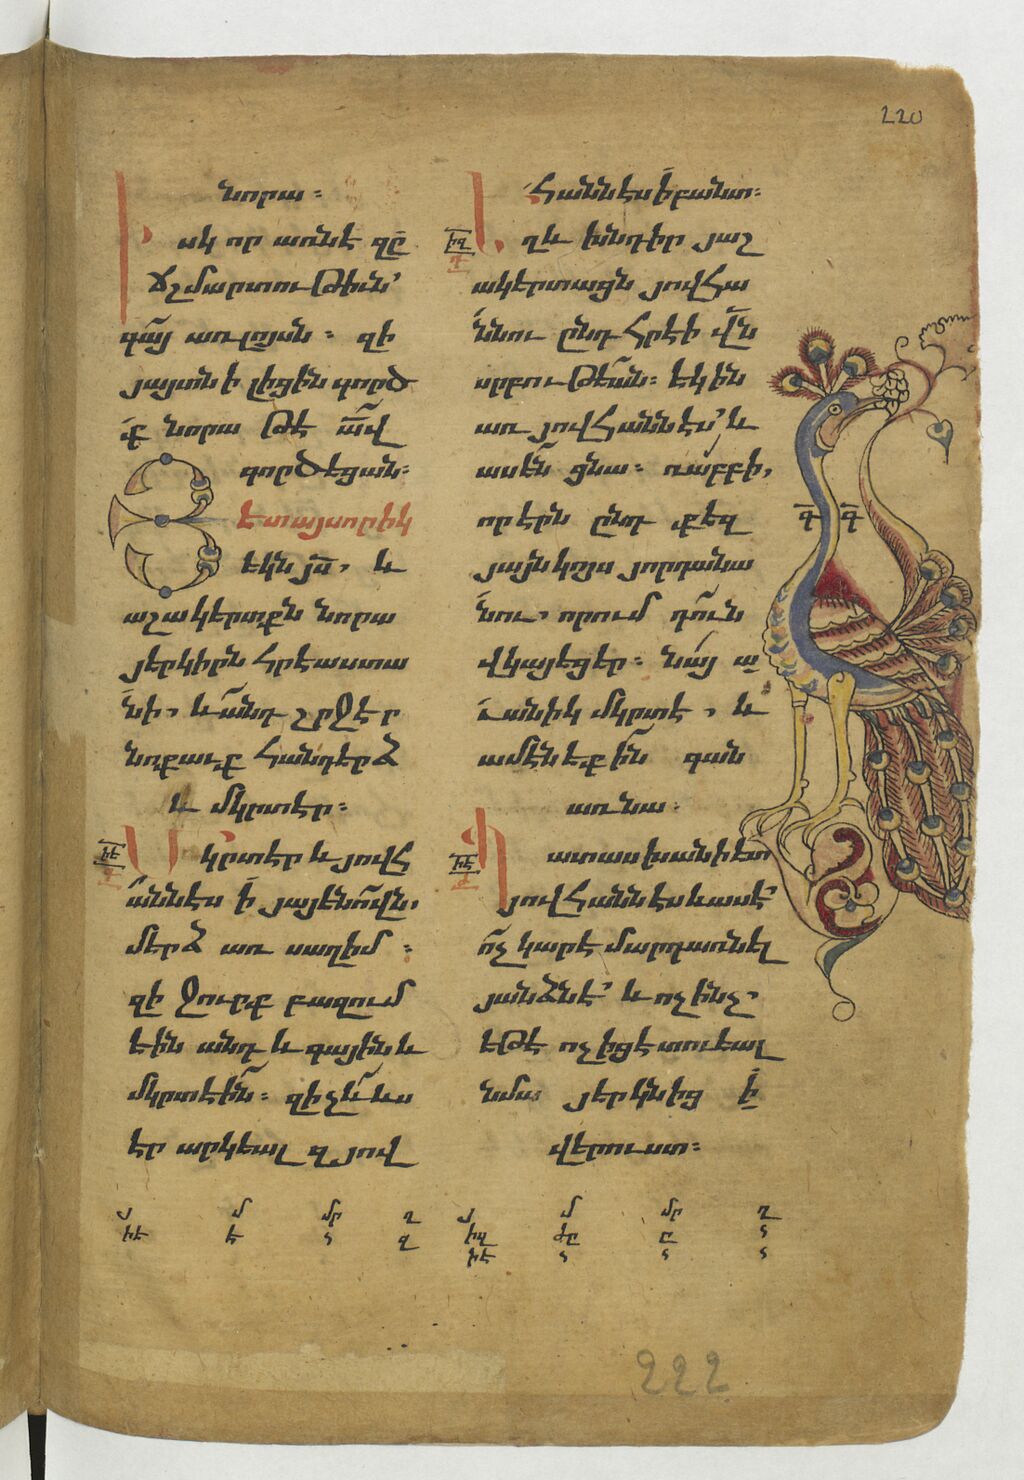 220
նորա ։
Իսկ որ առնէ զը
ճշմարտութիւն՝
գայ առ լոյսն ։ զի
յայտնի լիցին գործ
ք նորա թէ ա̅ծվ
գործեցան։
Յետ այսորիկ
եկն յս̅, և
աշակերտքն նորա
յերկիրն հրէաստա
նի, և անդ շրջէր
նոքաւք հանդերձ
և մկրտէր։
Մկրտէր և յովհ
աննէս ի յայենովն,
մերձ առ սաղիմ ։
զի ջուրք բազում
էին անդ և գային և
մկրտէին ։ զի չև ևս
էր արկեալ զյով
հաննէս ի բանտ։
Եղև խնդիր յաշ
ակերտացն յովհա
ննու ընդ հրէի վ̅ն
սրբութե̅ան։ եկին
առ յովհաննէս՝ և
ասեն ցնա։ ռաբբի,
որ էրն ընդ քեզ
յայնկոյս յորդանա
նու, որում դուն
վկայեցեր։ նայ ա
ւանիկ մկրտէ, և
ամենեքին գան
առ նա։
Պատասխանի ետ
յովհաննէս և ասէ՝
ոչ կարէ մարդ առնել
յանձնէ՝ և ոչ ինչ՝
եթէ ոչ իցէ տուեալ
նմա յերկնից ի
վերուստ։
յ մ մր ղ յ մ մր ղ
222